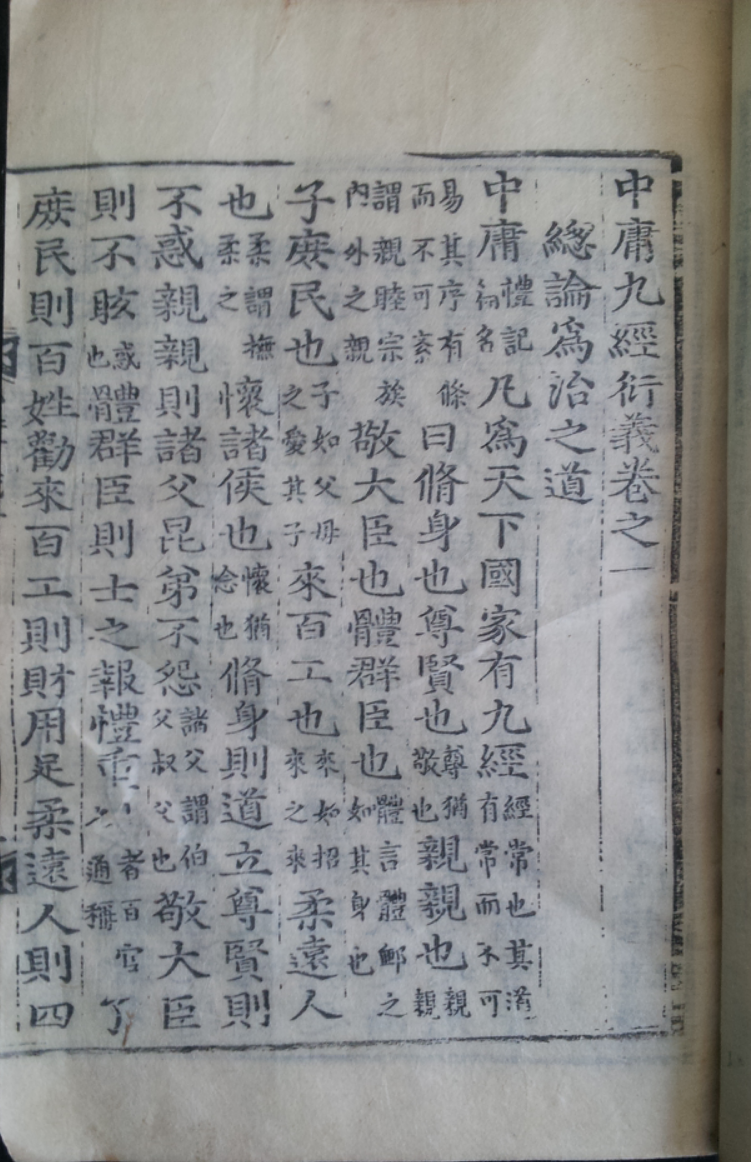 中庸九經衍義卷之一
總論爲治之道
中庸禮記篇名凡爲天下國家有九經經常也其道有常而不可
易其序有條而不可紊曰脩身也尊賢也尊猶敬也親親也親親
謂親睦宗族內外之親敬大臣也體群臣也體言體卹之如其身也
子庶民也子如父母之愛其子來百工也來如招來之來柔遠人
也柔謂撫柔之懷諸侯也懷猶念也脩身則道立尊賢則
不惑親親則諸父昆弟不怨諸父謂伯父叔父也敬大臣
則不眩惑也體群臣則士之報禮重者百官通稱
庶民則百姓勸來百工則財用足柔遠人則四